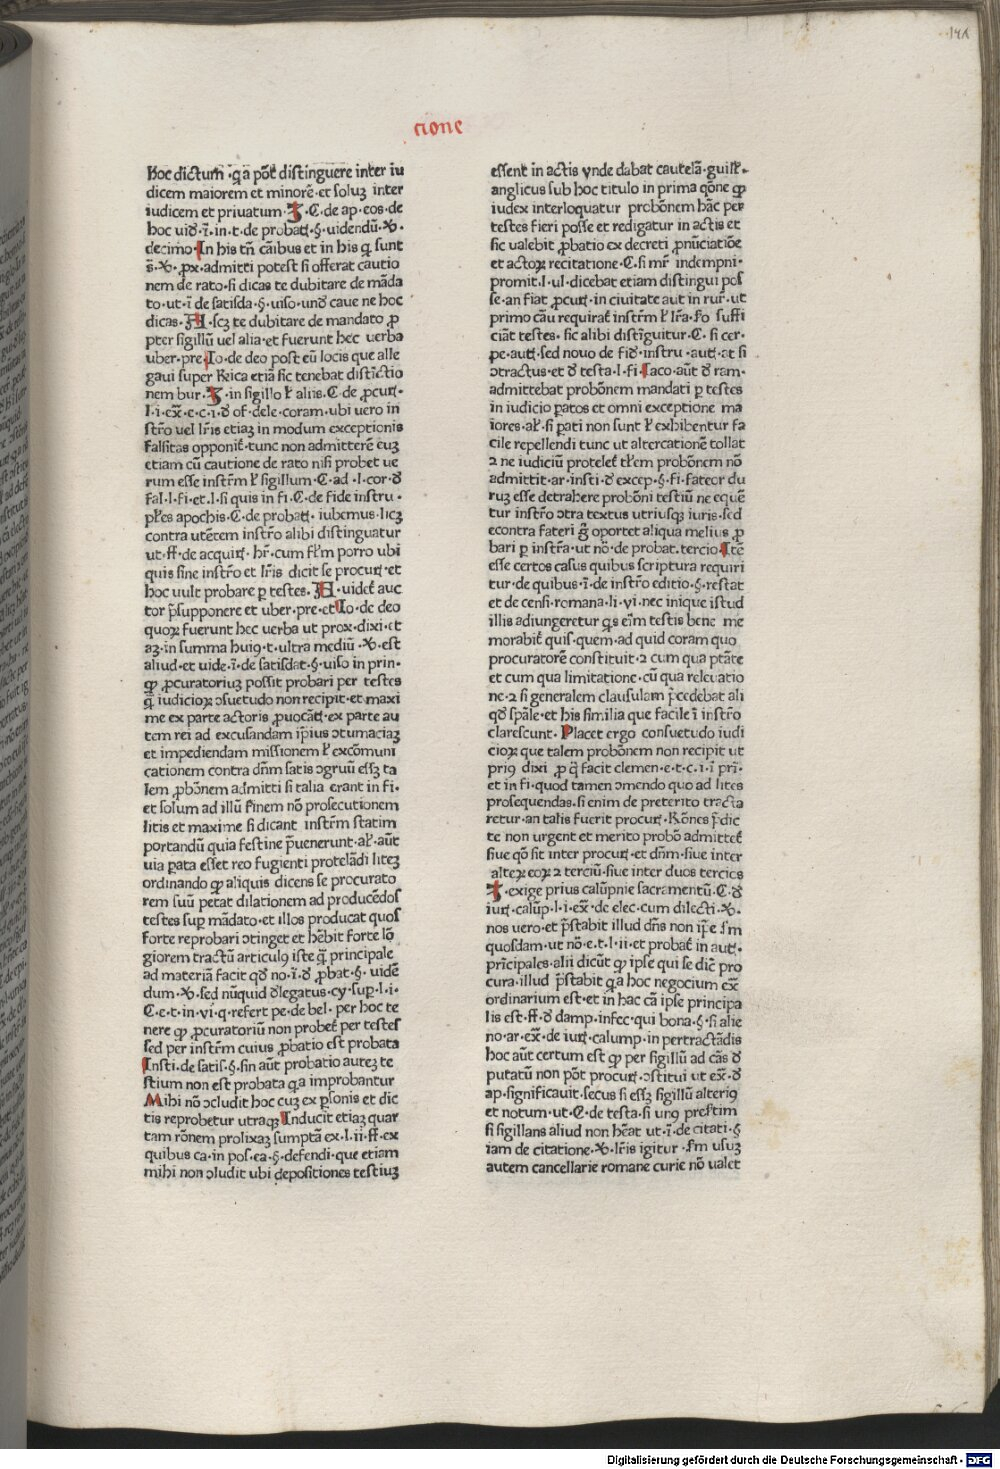 cione
hoc dictum ·q̄a pōt̄ distinguere inter iu
dicem maiorem et minorē·et soluꝫ inter
iudicem et priuatum·ꝫ·C·de ap·eos·de
hoc uiđ·ī·in·t·de probatꝭ·§·uidendū·℣·
decimo·In his tn̄ cāibus et in his q̄ sunt
s̄·℣·ꝓx·admitti potest si offerat cautio
nem de rato·si dicas te dubitare de māda
to·ut·ī·de satisda·§·uiso·unđ caue ne hoc
dicas·H·scꝫ te dubitare de mandato ꝓ
pter sigillū uel alia·et fuerunt hec uerba
uber·pre·Io·de deo post eū locis que alle
gaui super Rica etiā sic tenebat distīctio
nem bur·ꝫ·in sigillo ł aliis·C·de ꝓcur̄·
l·i·ex̄·e·c·i·đ of·dele·coram·ubi uero in
str̄o uel lr̄is etiaꝫ in modum exceptionis
falsitas opponit̄·tunc non admitterē euꝫ
etiam cū cautione de rato nisi probet ue
rum esse instr̄m ł sigillum·C·ad·l·cor·đ
fal·l·fi·et·l·si quis in fi·C·de fide instru·
pl̄es apochis·C·de probatꝭ·iubemus·licꝫ
contra utētem instr̄o alibi distinguatur
ut·ff·de acquir̄·hr̄·cum fl̄m porro ubi
quis sine instr̄o et lr̄is dicit se procur̄·et
hoc uult probare ꝑ testes·H·uidet̄ auc
tor p̄supponere et uber·pre·et Io·de deo
quoꝝ fuerunt hec uerba ut prox·dixi·et
aꝫ·in summa huiꝯ·t·ultra mediū·℣·est
aliud·et uide·ī·de satisdat·§·uiso in prin·
ꝙ ꝓcuratoriuꝫ possit probari per testes
q̄ iudicioꝝ ↄsuetudo non recipit·et maxi
me ex parte actoris ꝓuocātꝭ·ex parte au
tem rei ad excusandam ip̄ius ↄtumaciaꝫ
et impediendam missionem ł excōmuni
cationem contra dn̄m satis ↄgruū essꝫ ta
lem ꝓbōnem admitti si talia erant in fi·
et solum ad illū finem nō prosecutionem
litis et maxime si dicant instr̄m statim
portandū quia festine p̄uenerunt·ał·aūt
uia parata esset reo fugienti protelādi liteꝫ
ordinando ꝙ aliquis dicens se procurato
rem suū petat dilationem ad producēdos
testes suꝑ mādato·et illos producat quos
forte reprobari ↄtinget et hēbit forte lō
giorem tractū articulꝯ iste q̄ principale
ad materiā facit qđ no·ī·đ ꝓbat·§·uidē
dum·℣·sed nūquid đlegatus·cy·suꝑ·l·i·
C·e·t·in·vi·q·refert pe·de bel·per hoc te
nere ꝙ ꝓcuratoriū non probet̄ per testes
sed per instr̄m cuius ꝓbatio est probata
Insti·de satis·§·sin aūt probatio autez te
stium non est probata q̄a improbantur
Mihi nō ↄcludit hoc cuꝫ ex ꝑsonis et dic
tis reprobetur utraqꝫ Inducit etiaꝫ quar
tam rōnem prolixaꝫ sumptā ex·l·ii·ff·ex
quibus ca·in pos·ea·§·defendi·que etiam
mihi non ↄludit ubi depositiones testiuꝫ
essent in actis ynde dabat cautelā·guilł·
anglicus sub hoc titulo in prima qōne ꝙ
iudex interloquatur probōnem hāc per
testes fieri posse et redigatur in actis et
sic ualebit ꝓbatio ex decreti ꝓnūciatiōe
et actoꝝ recitatione·C·si mr̄ indempni·
promit·l·ul·dicebat etiam distingui pos
se·an fiat ꝓcurꝭ·in ciuitate aut in rur̄·ut
primo cāu requirat̄ instr̄m ł lr̄a·ſo suffi
ciāt testes·sic alibi distīguitur·C·si cer·
pe·autꝭ·sed nouo de fiđ·instru·autꝭ·at si
ↄtractus·et đ testa·l·fi·Iaco·aūt đ ram·
admittebat probōnem mandati ꝑ testes
in iudicio ꝑatos et omni exceptione ma
iores·ał·si ꝑati non sunt ł exhibentur fa
cile repellendi tunc ut altercationē tollat
2 ne iudiciū protelet̄ tłem probōnem nō
admittit·ar·insti·đ excep·§·fi·fateor du
ruꝫ esse detrahere probōni testiū ne equē
tur instr̄o ↄtra textus utriusqꝫ iuris·sed
econtra fateri g̊ oportet aliqua melius ꝓ
bari ꝑ instr̄a·ut nō·de probat·tercio·Itē
esse certos casus quibus scriptura requiri
tur·de quibus·ī·de instr̄o editio·§·restat
et de censi·romana·li·vi·nec inique istud
illis adiungeretur q̄s eīm testis bene me
morabit̄ quis·quem·ad quid coram quo
procuratorē constituit·2 cum qua ptāte
et cum qua limitatione·cū qua releuatio
ne·2 si generalem clausulam p̄cedebat ali
qđ spāle·et his similia que facile ī instr̄o
clarescunt·Placet ergo consuetudo iudi
cioꝝ que talem probōnem non recipit ut
priꝯ dixi ꝓ q̄ facit clemen·e·t·c·i·ī pri·
et in fi·quod tamen ↄmendo quo ad lites
prosequendas·si enim de preterito tracta
retur·an talis fuerit procur̄·Rōnes p̄dic
te non urgent et merito probō admittet̄
siue qō sit inter procur̄·et dn̄m·siue inter
alteꝝ eoꝝ 2 terciū·siue inter duos tercios
ꝫ·exige prius calūpnie sacramentū·C·đ
iurꝭ·calūp·l·i·ex̄·de elec·cum dilecti·℣·
nos uero·et p̄stabit illud dn̄s non ip̄e ſm
quosdam·ut nō·e·t·l·ii·et probat̄ in autꝭ·
prīcipales·alii dicūt ꝙ ipse qui se dic̄ pro
cura·illud p̄stabit q̄a hoc negocium ex̄
ordinarium est·et in hac cā ipse principa
lis est·ff·đ damp·infec·qui bona·§·si alie
no·ar·ex̄·de iurꝭ·calump·in pertractādis
hoc aūt certum est ꝙ per sigillū ad cās đ
putatū non pōt procurꝭ·ↄstitui ut ex̄·đ
ap·significauit·secus si essꝫ sigillū alteriꝯ
et notum·ut·C·de testa·si unꝯ prestim
si sigillans aliud non hēat ut·ī·de citati·§
iam de citatione·℣·lr̄is igitur·ſm usuꝫ
autem cancellarie romane curie nō ualet
Digitalisierung gefördert durch die Deutsche Forschungsgemeinschaft - DFG